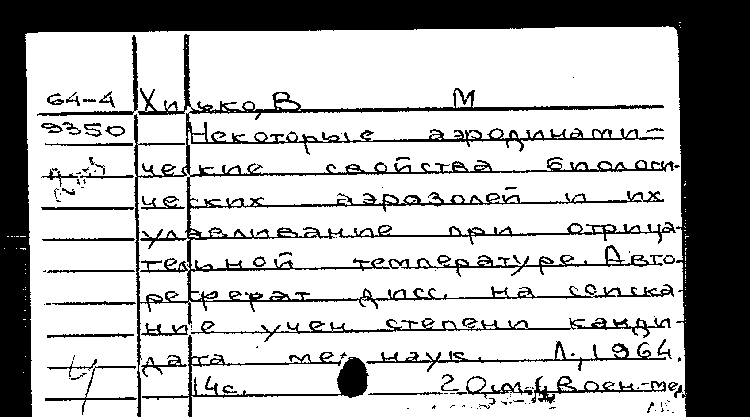 64-4 Хилько, В М
9350 Некоторые аэродинами-
ческие свойства биологи-
ческих аэрозолей и их
улавливание при отрица-
тельной температуре. Авто-
реферат дисс. на соиска-
ние учен степени канди-
дата мед наук. Л., 1964.
14с. 20см. (Воен-мед.